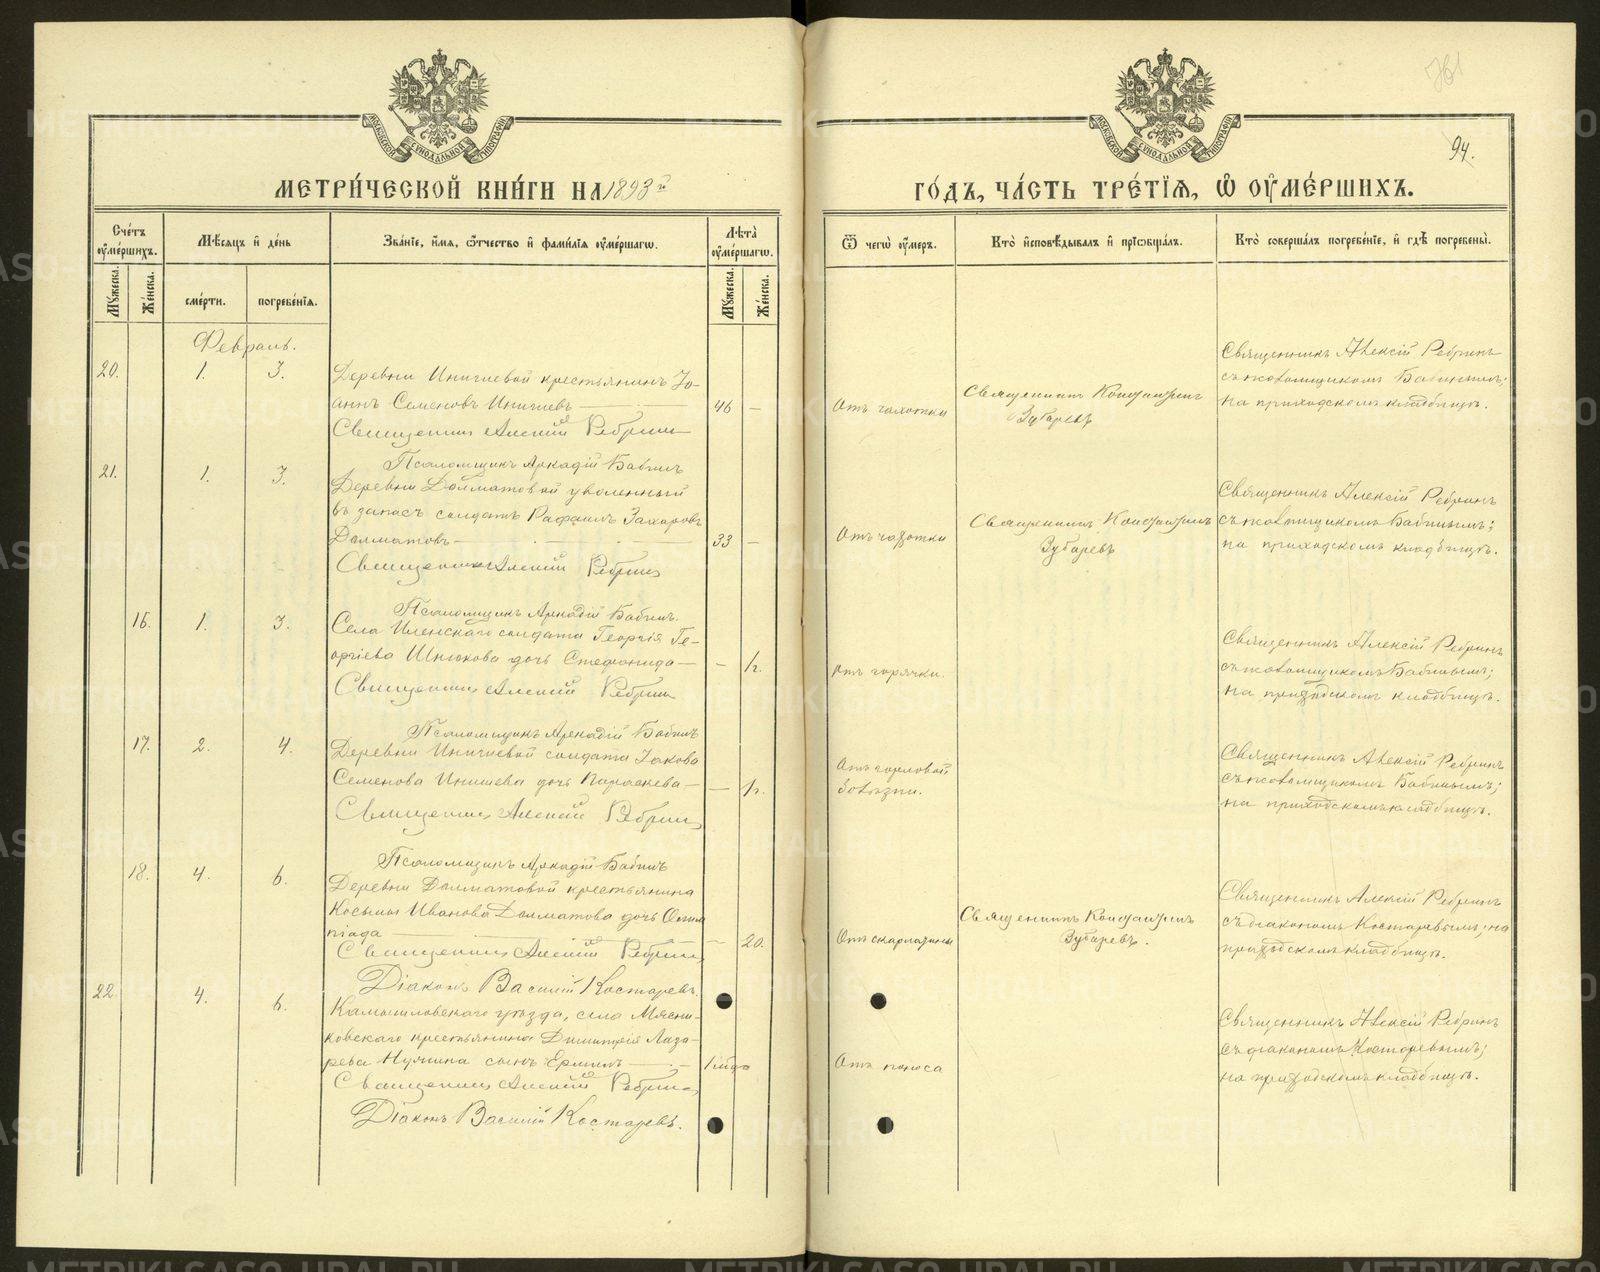 МОСКОВСКОЙ СѴНОДАЛЬНОЙ ТИПОГРАФІИ
МЕТРИ́ЧЕСКОЙ КНИ́ГИ НА 1893й
Сче́тъ ᲂу҆ме́ршихъ.
Мꙋ́жеска.
Же́нска.
Мѣ́сѧцъ и҆ де́нь
сме́рти.
погребе́нїѧ.
Зва́нїе, и҆́мѧ, ѻ҆́тчество и҆ фами́лїѧ ᲂу҆ме́ршагѡ.
Лѣта̀ ᲂу҆ме́ршагѡ.
Мꙋ́жеска.
Же́нска.
Февраль.
20.
1.
3.
Деревни Иничиевой крестьянинъ Іо-
аннъ Семеновъ Иничиевъ
46 —
Священникъ Алексій Ребринъ
Псаломщикъ Аркадій Бабинъ
21.
1.
3.
Деревни Долматовой уволенный
въ запасъ солдатъ Рафаилъ Захаровъ
Долматовъ
33 —
Священникъ Алексій Ребринъ
Псаломщикъ Аркадій Бабинъ.
16.
1.
3.
Села солдата Георгія Ге-
оргіева дочь Стефанида
— 1 г.
Священникъ Алексій Ребринъ
Псаломщикъ Аркадій Бабинъ
17.
2.
4.
Деревни Иничиевой солдата Іакова
Семенова дочь Параскева
— 1 г.
Священникъ Алексій Ребринъ
Псаломщикъ Аркадій Бабинъ
18.
4.
6.
Деревни Долматовой крестьянина
Косьмы Иванова Долматова дочь Олим
піада
— 20.
Священникъ Алексій Ребринъ
Діаконъ Василій Костаревъ.
22
4.
6.
Камышловскаго уѣзда, села Мясни-
ковскаго крестьянина Димитрія Лаза-
рева сынъ Ермилъ
Священникъ Алексій Ребринъ
Діаконъ Василій Костаревъ.
МОСКОВСКОЙ СѴНОДАЛЬНОЙ ТИПОГРАФІИ
94.
ГО́ДЪ, ЧА́СТЬ ТРЕ́ТЇѦ, Ѡ҆ ОУ҆МЕ́РШИХЪ.
Ѿ чегѡ̀ ᲂу҆́меръ.
Кто̀ и҆сповѣ́дывалъ и҆ прїѡбща́лъ.
Кто̀ соверша́лъ погребе́нїе, и҆ гдѣ̀ погребены̀.
Отъ чахотки
Священникъ Константинъ
Зубаревъ
Священникъ Алексій Ребринъ
съ псаломщикомъ Бабинымъ;
на приходскомъ кладбищѣ.
Отъ чахотки
Священникъ Константинъ
Зубаревъ
Священникъ Алексій Ребринъ
съ псаломщикомъ Бабинымъ;
на приходскомъ кладбищѣ.
отъ горячки.
Священникъ Алексій Ребринъ
съ псаломщикомъ Бабинымъ;
на приходскомъ кладбищѣ.
Отъ горловой
болѣзни.
Священникъ Алексій Ребринъ
съ псаломщикомъ Бабинымъ;
на приходскомъ кладбищѣ.
Отъ скарлатины
Священникъ Константинъ
Зубаревъ.
Священникъ Алексій Ребринъ
съ діакономъ Костаревымъ, на
приходскомъ кладбищѣ.
Отъ поноса
Священникъ Алексій Ребринъ
съ діакономъ Костаревымъ;
на приходскомъ кладбищѣ.
METRIKI.GASO-URAL.RU